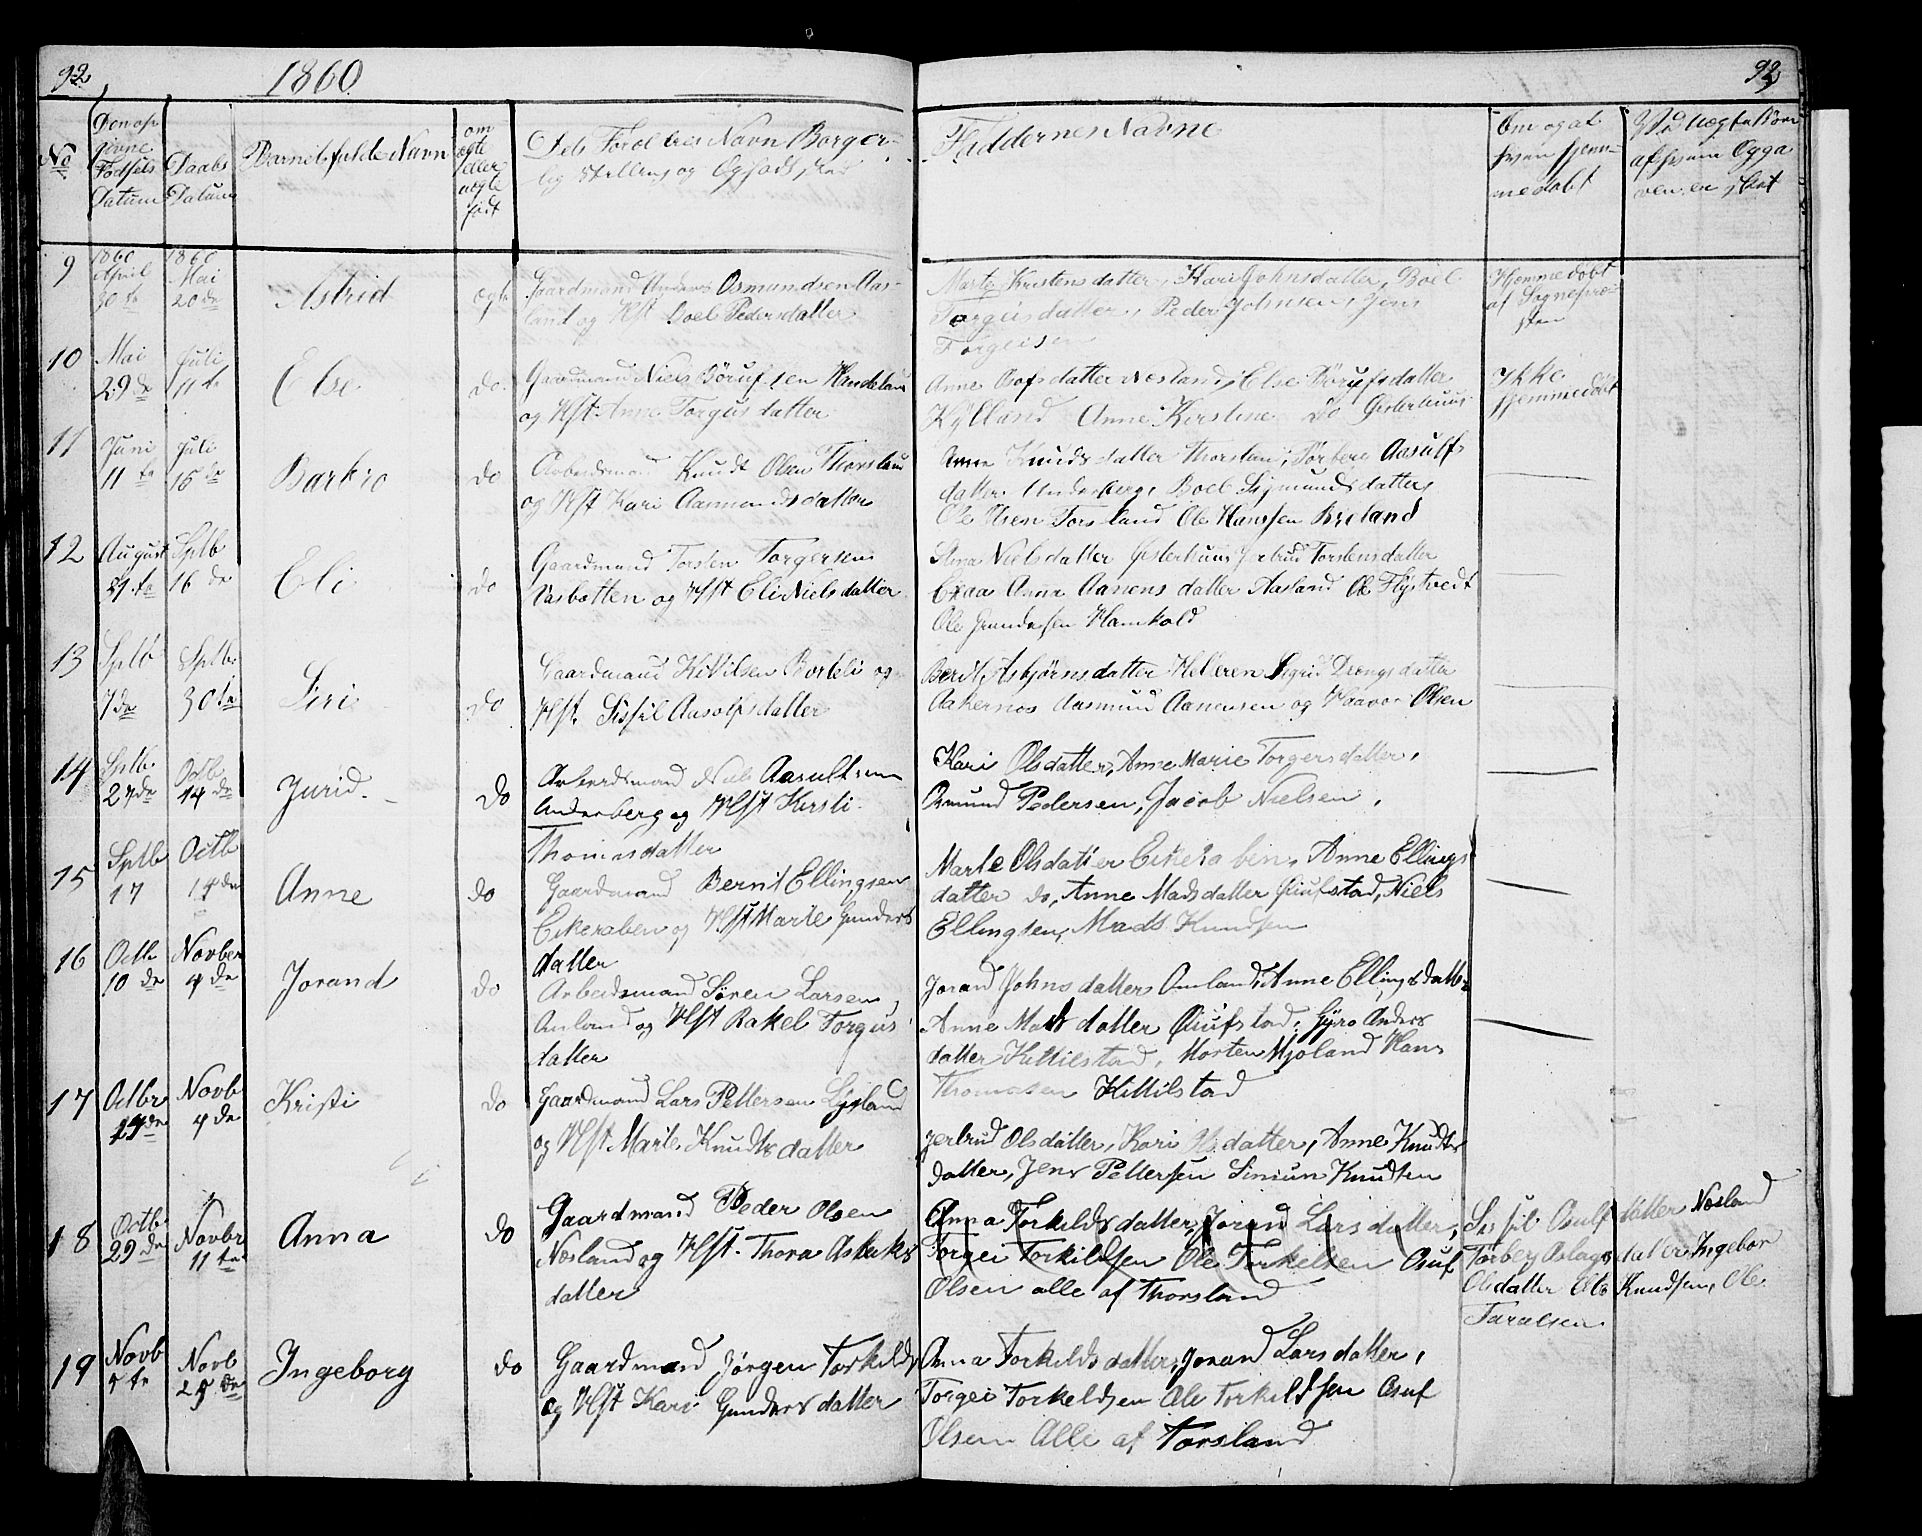 92
1860
92
No
Den op
givne
Fødsels
Datum
Daabs
Datum
Barnets fulde Navn
om
ægte
eller
uægte
født
Dets Forældres Navn Borger-
lig Stilling og Opholdsted
Faddernes Navne
Om og af
hvem hjem-
medøbt
Ved Uægte Børn
af hvem Opga
ven er skeet
9
1860
April
30te
1860
Mai
20de
Astrid
ægte
Gaardmand Anders Osmundsen Aas-
land og Hst Boel Pedersdatter
Marte Kristensdatter, Kari Johnsdatter, Boel
Torgeisdatter, Peder Johnsen, Jens
Torgeisen
Hjemmedøbt
af Sognepræ-
sten
10
Mai
29de
Juli
11te
Else
do.
Gaardmand Niels Børufsen Handeland
og Hst. Anne Torgusdatter
Anne Osofsdatter Nosland, Else Børufsdatter
Kylland Anne Kirstine do Østerhuus
Ikke
hjemmedøbt
11
Juni
11te
Juli
15de
Barbro
do
Arbeidsmand Knudt Olsen Thorsland
og Hst Kari Aasmundsdatter
Anne Knudsdatter Thorsland, Torberg Aasulfs
datter Underberg, Boel Sigmundsdatter
Ole Olsen Torsland Ole Hanssen Breland
12
August
21te
Sptb
16de
Eli
do
Gaardmand Torsten Torgersen
Vasbotten og Hst Eli Nielsdatter
Stina Nielsdatter Østerhuus Jerbrud Torstensdatter
Anna Aanensdatter Aasland Ole Flystvedt
Ole Gundersen Hamkold
13
Sptb
7de
Sptb.
30te
Siri
do
Gaardmand Kittilsen Borteli og
Hst. Sissil Aasolfsdatter
Berit Asbjørnsdatter Helleren Sigrid Drengsdatter
Aakernos Aasmund Aanensen og Haavor Olsen
14
Sptb
27de
Octb
14de
Jurid.
do
Arbeidsmand Niels Aasultsen
Underberg og Hst Kirsti
Thomasdatter
Kari Olsdatter, Anne Marie Torgersdatter,
Osmund Pedersen, Jacob Nielsen,
15
Sptb
17
Octb
14de
Anne
do
Gaardmand Bernt Ellingsen
Eikeraben og Hst Marte Gunders
datter
Marte Olsdatter Eikeraben, Anne Ellings
datter do, Anne Madsdatter Øiufstad, Niels
Ellingsen, Mads Knudsen
16
Octb
10de
Novber
4de
Jorand
do
Arbeidsmand Søren Larsen
Omland og Hst Rakel Torgus
datter
Jorand Johnsdatter Omland, Anne Ellingsdatter
Anne Madsdatter Øiufstad, Gyro Anders
datter Kittilstad, Morten Mjoland Hans
Thomasen Kittilstad
17
Octbr
24de
Novb
4de
Kristi
do
Gaardmand Lars Pettersen Lysland
og Hst Marte Knudtsdatter
Jerbrud Olsdatter, Kari Olsdatter, Anne Knudts
datter, Jens Pettersen Simun Knudten
18
Octb
29de
Novbr
11te
Anna
do
Gaardmand Peder Olsen
Nosland og Hst. Thora Aslaks
datter
Anna Torkildsdatter, Jorand Larsdatter,
Torgei Torkildsen Ole Torkelsen Osuf
Olsen alle af Thorsland
Sissil Osulfdatter Nosland
Torbey Aslagsdatter Ingebor
Olsdatter Ole Knudsen, Ole
Taralsen
19
Novb
4te
Novb
25de
Ingeborg
do
Gaardmand Jørgen Torkilds
og Hst Kari Gundersdatter
Anna Torkildsdatter, Jorand Larsdatter,
Torgei Torkeldsen Ole Torkildsen Osuf
Olsen Alle af Torsland